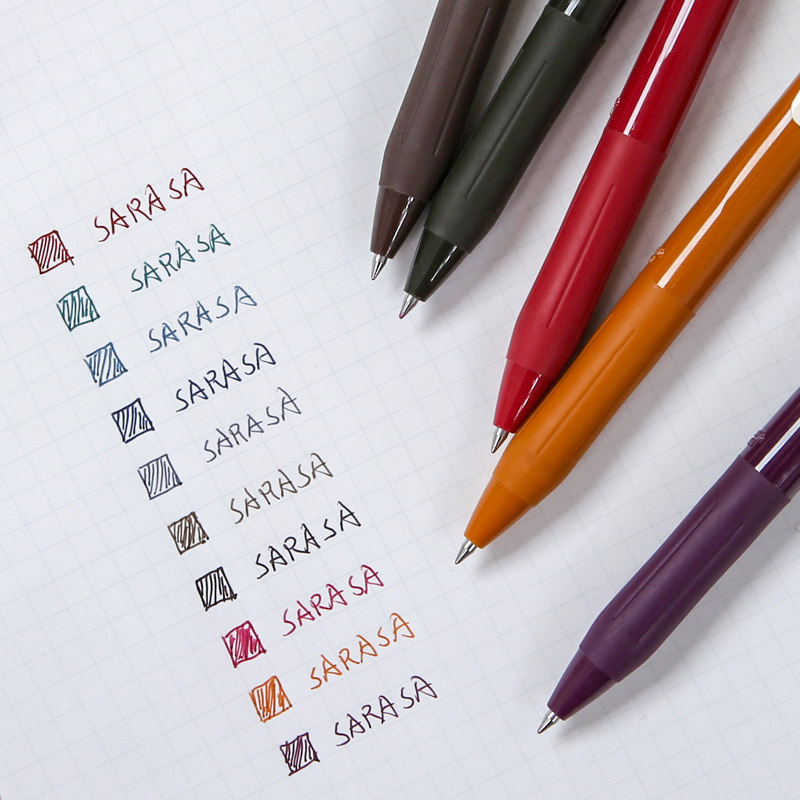 SARASA
SARASA
SARASA
SARASA
SARASA
SARASA
SARASA
SARASA
SARASA
SARASA